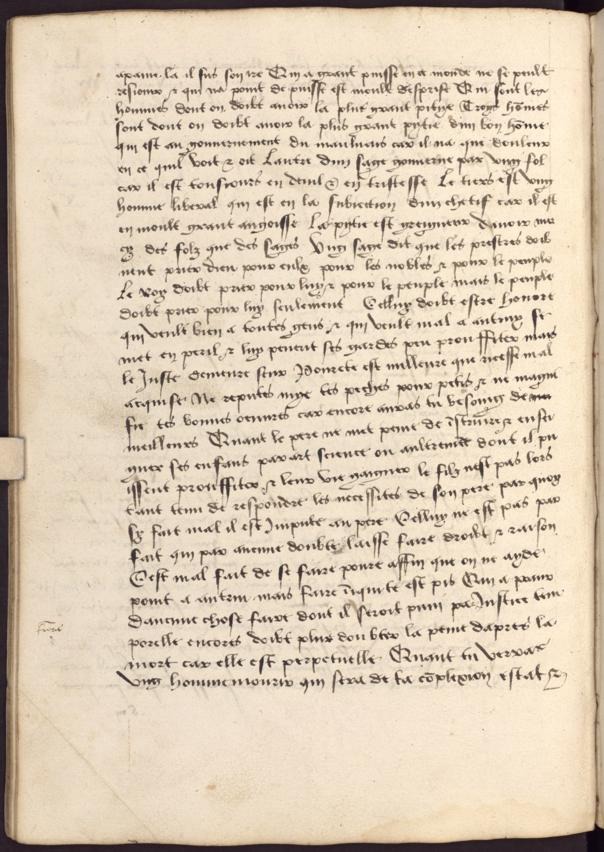 apaine la il fus son ire Qui a grant puisse en ce monde ne se peult
resiouir & qui na point de puisse est moult desprise Qui sont les
hommes dont on doibt auoir la plus grant pitye Troys hōmes
sont dont on doibt auoir la plus grant pytie dun bon hōme
qui est au gouuernement du mauluais car il na que douleur
en ce quil voit & oit Lautre dun sage gouuerne par vng fol
car il est tousiours en deuil & en tristesse Le tiers est vng
homme liberal qui est en la subiection dun chetif car il est
en moult grant angoisse La pytie est greigneur dauoir mer
cy des folz que des sages Vng sage dit que les prestres doib
uent prier dieu pour eulx pour les nobles & pour le peuple
Le Roy doibt prier pour luy & pour le peuple mais le peuple
doibt prier pour luy seulement Celluy doibt estre honore
qui veult bien a toutes gens & qui veult mal a autruy se
met en peril & luy peuent ses gardes peu prouffiter mais
le Juste demeure seur Pourete est meilleure que richesse mal
acquise Ne reputes mye tes peches pour petis & ne magni
fie tes bonnes oeuures car encore auras tu besoing de
meilleurs Quant le pere ne met peine de īstruire & ensei
gner ses enfans par art science ou aultremēt dont il pu
issent prouffiter & leur vie gaigner le filz nest pas lors
tant tenu de respondre les necessites de son pere par quoy
sy fait mal il est Impute au pere Celluy ne est pas par
fait qui par aucune doubte laisse faire droibt & raison
Cest mal fait de se faire poure affin que on ne ayde
point a autrui mais faire īiquite est pis Qui a paour
daucune chose faire dont il seroit puni par Justice tem
porelle encores doibt plus doubter la peine dapres la
mort car elle est perpetuelle Quant tu verras
vng homme mourir qui sera de ta cōplexion estat &